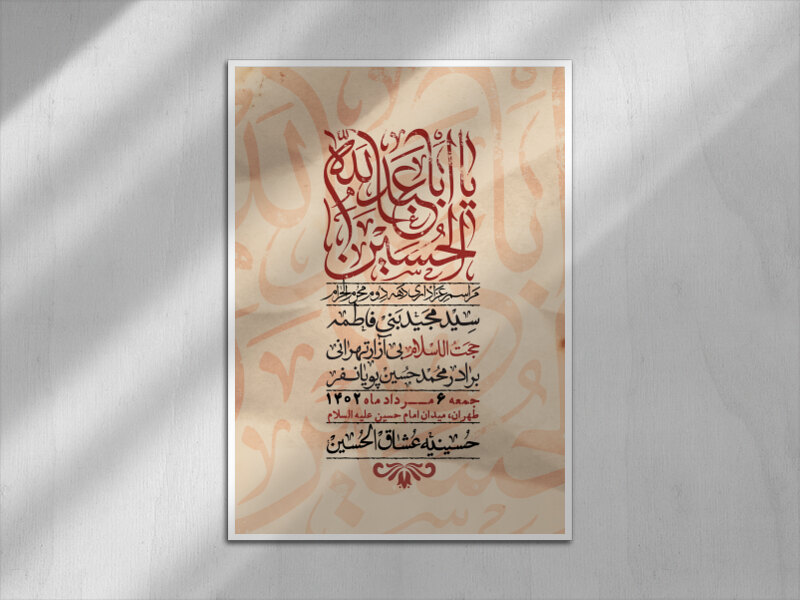 یا اباعبدالله
الحسین
مراسم عزاداری دهه دوم محرم الحرام
سید مجید بنی فاطمه
حجت الاسلام بی آزار تهرانی
برادر محمد حسین پویانفر
جمعه ۶ مرداد ماه ۱۴۰۲
طهران، میدان امام حسین علیه السلام
حسینیه عشاق الحسین